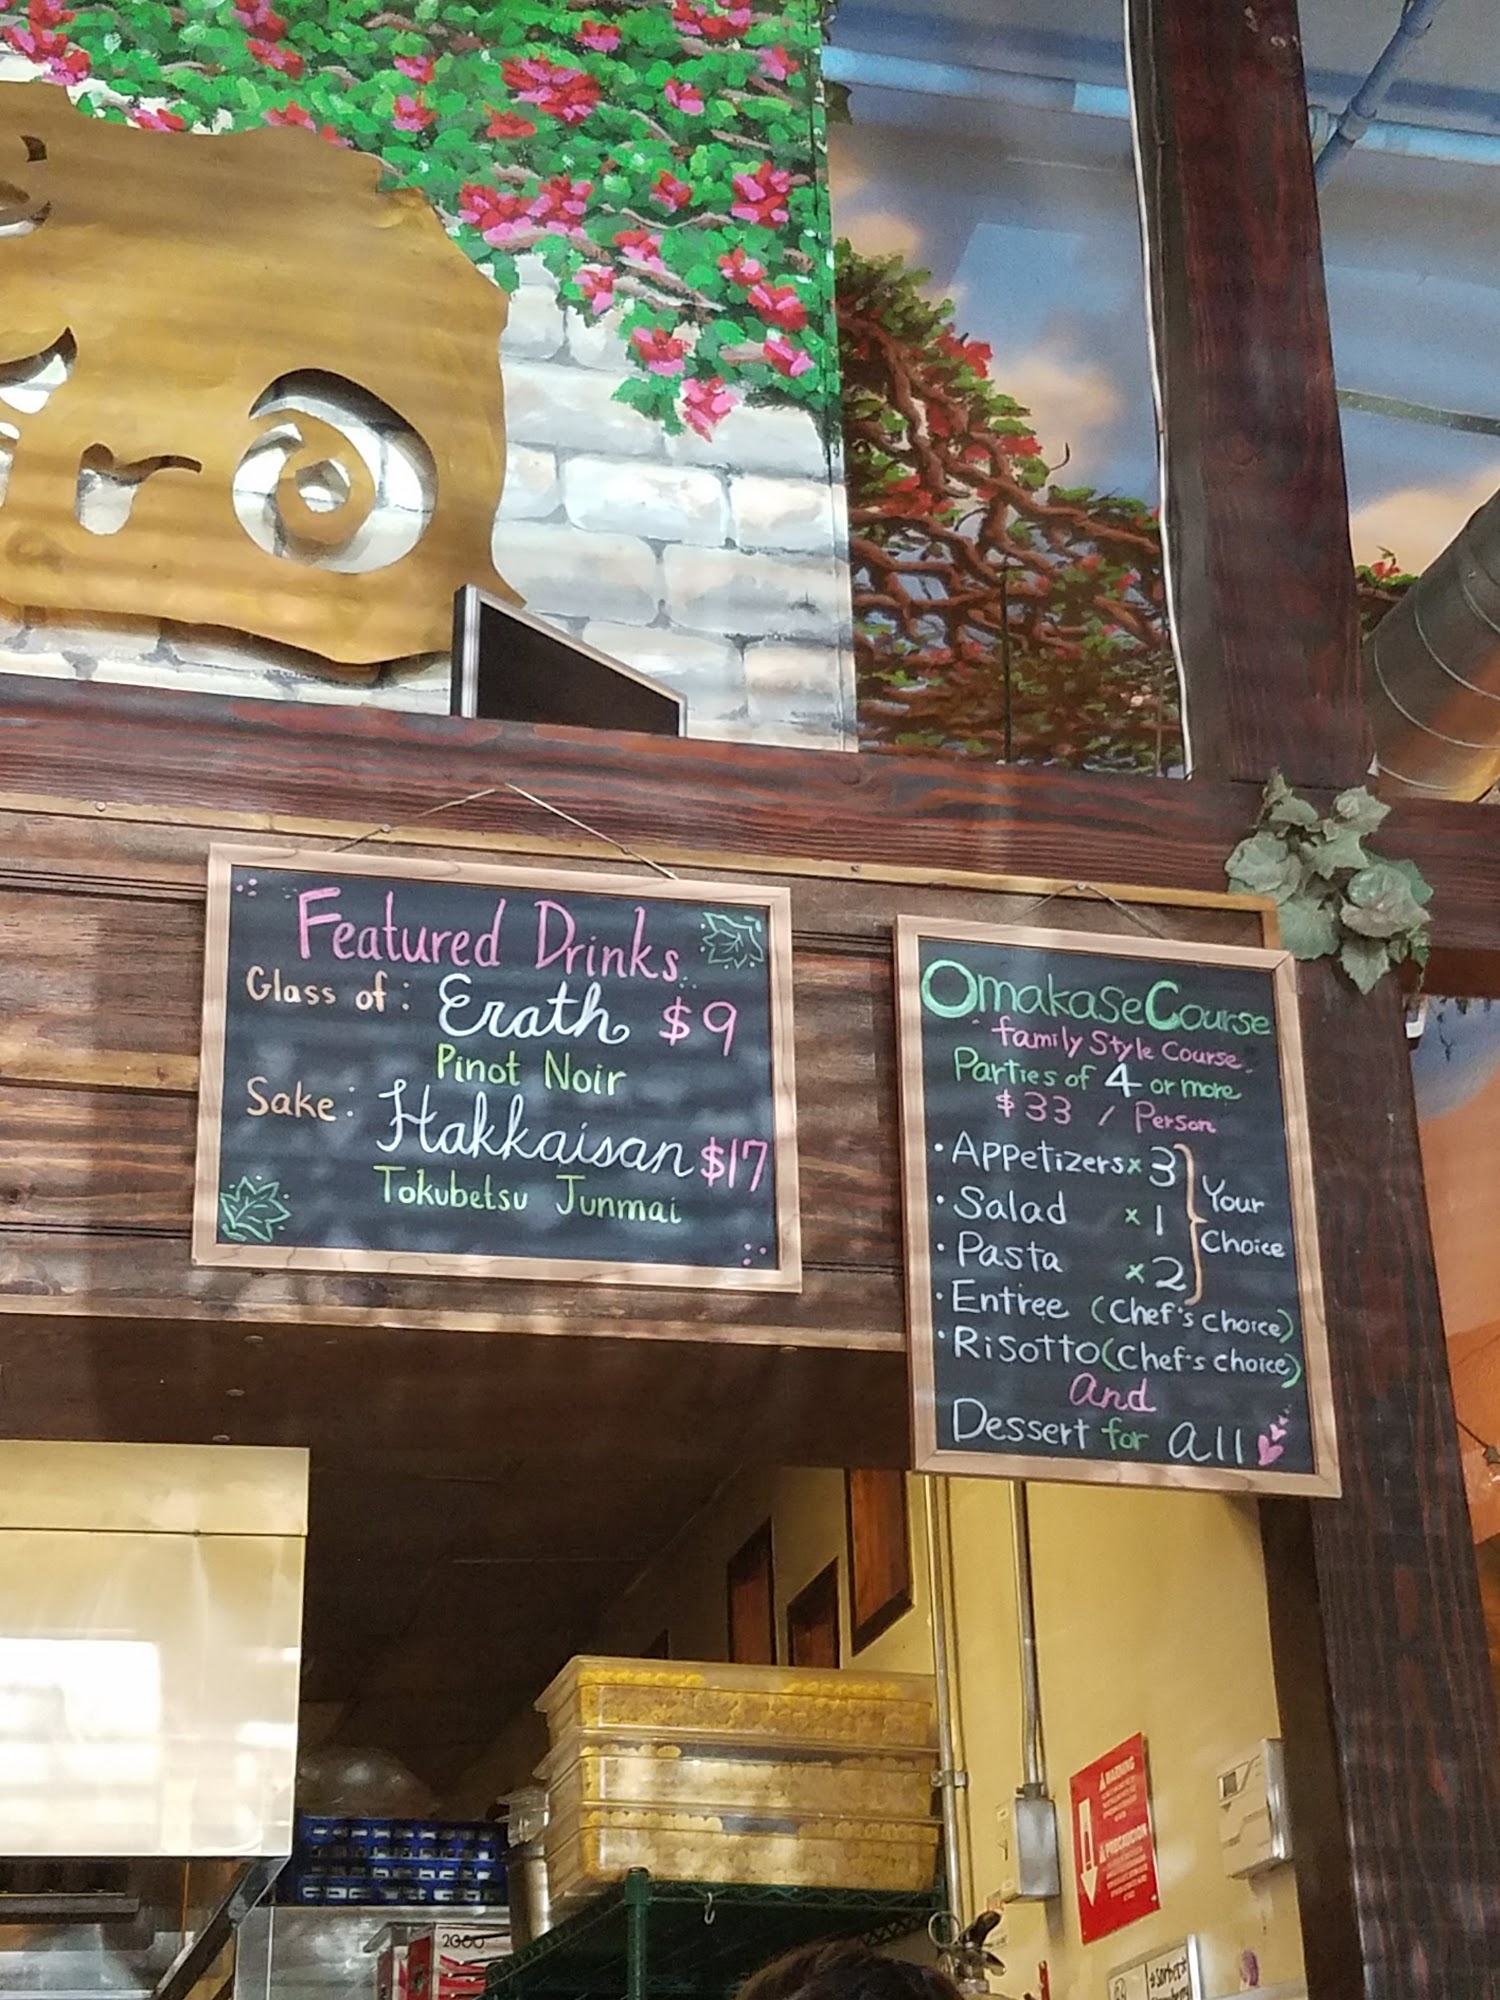 iro
Featured Drinks
Glass of: Erath $9
Pinot Noir
Sake: Hakkaisan $17
Tokubetsu Junmai
Omakase Course
family Style Course
Parties of 4 or more
$33 / Person
• Appetizers x 3
• Salad x 1
• Pasta x 2
Your
Choice
• Entree (Chef's choice)
• Risotto (Chef's choice)
and
Dessert for all
WARNING
PRECAUCION
2000